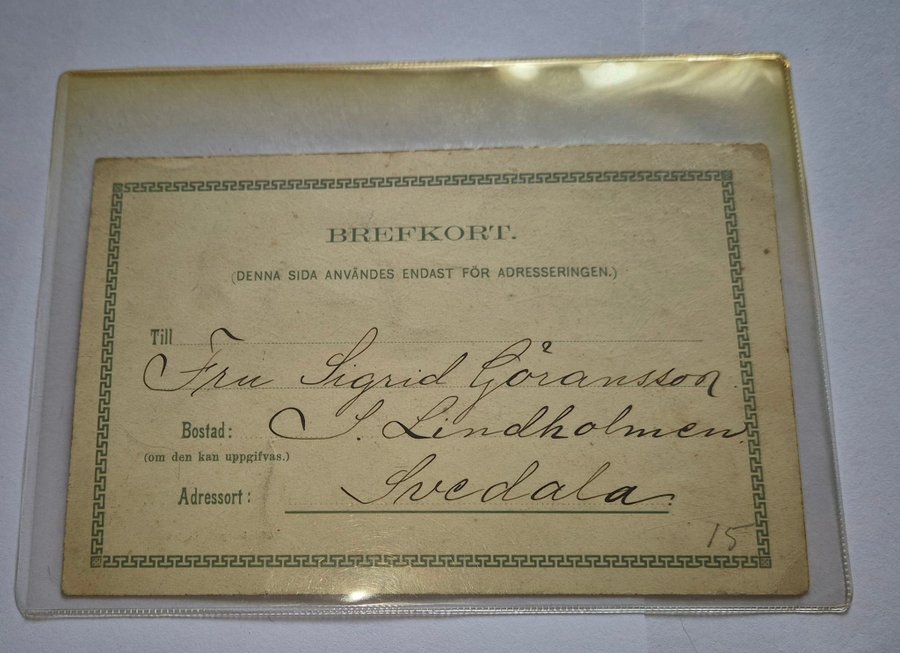 BREFKORT.
(DENNA SIDA ANVÄNDES ENDAST FÖR ADRESSERINGEN.)
Till
Fru Sigrid Göransson
Bostad: S. Lindholmen
(om den kan uppgifvas.)
Adressort: Svedala.
15